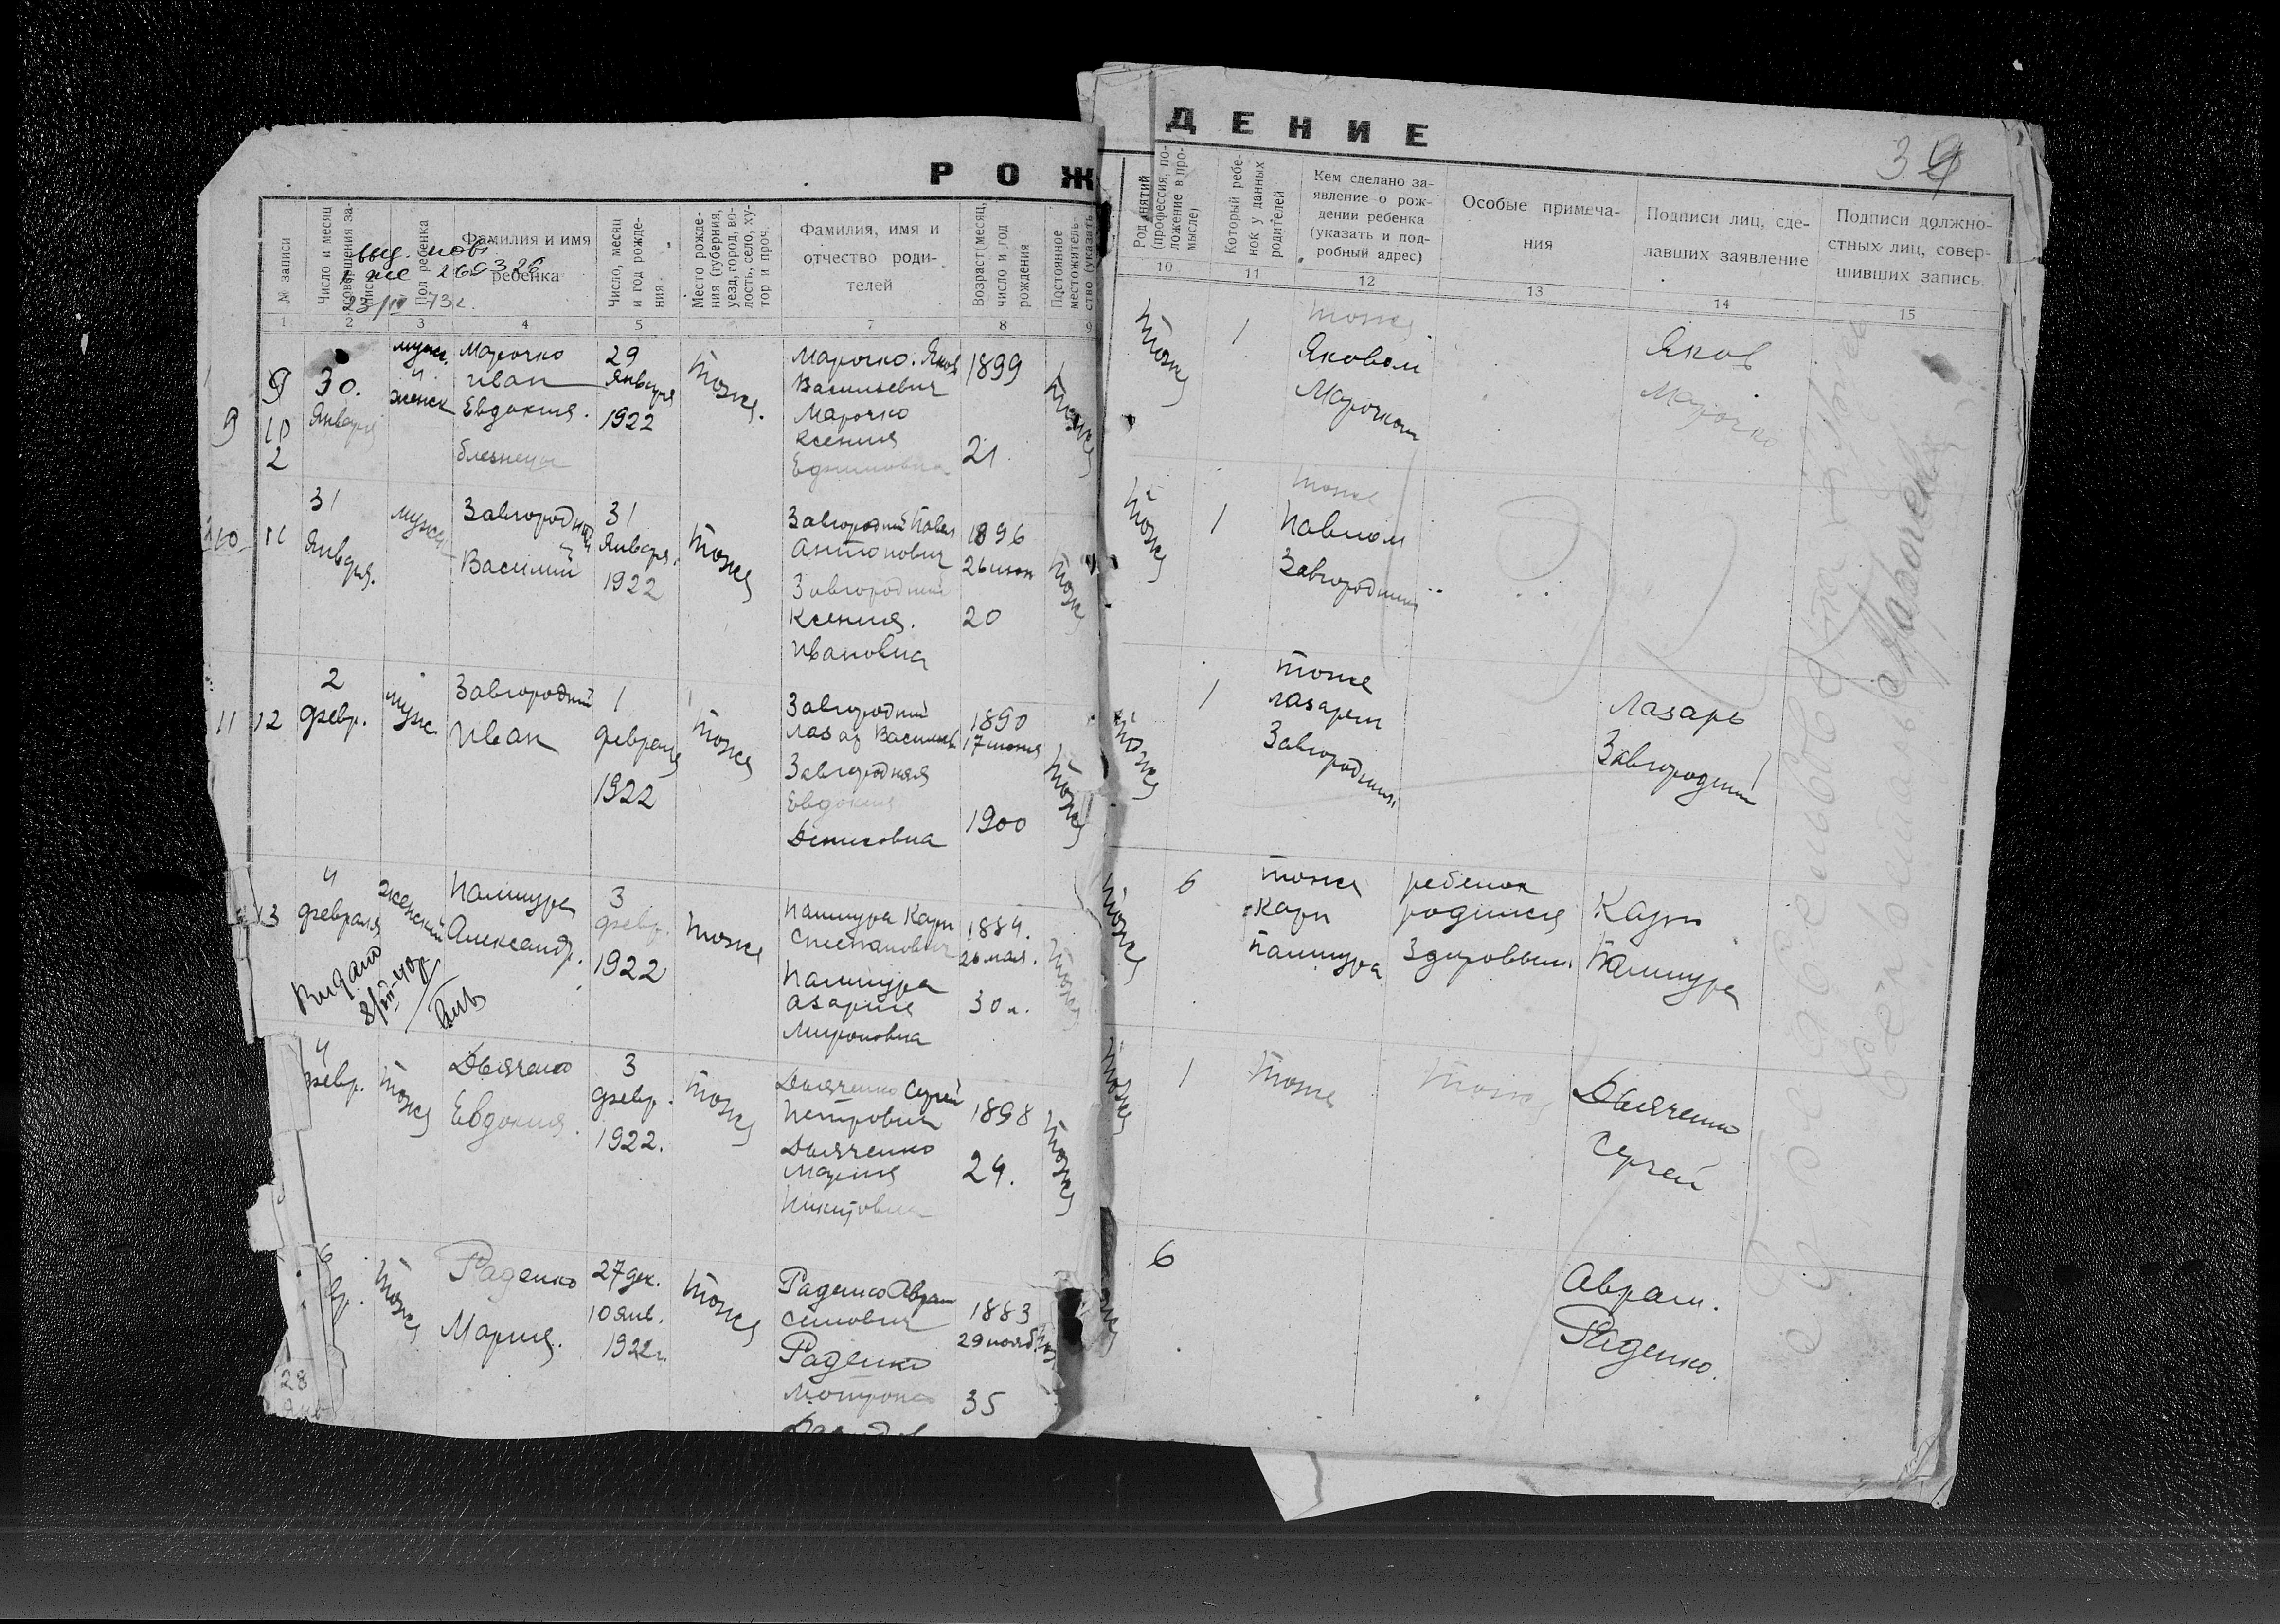 РОЖДЕНИЕ
39
№ записи
Число и месяц совершения за-
Пол ребенка
Фамилия и имя
ребенка
Число, месяц
и год рожде-
ния
Место рожде-
ния (губерния,
уезд, город, во-
лость, село, ху-
тор и проч.
Фамилия, имя и
отчество роди-
телей
Возраст (месяц,
число и год
рождения
Постоянное
местожитель-
ство (указать
Род занятий
(профессия, по-
ложение в про-
мысле)
Который ребе-
нок у данных
родителей
Кем сделано за-
явление о рож-
дении ребенка
(указать и под-
робный адрес)
Особые примеча-
ния
Подписи лиц, сде-
лавших заявление
Подписи должно-
стных лиц, совер-
шивших запись.
1 2 3 4 5 7 8 9 10 11 12 13 14 15
9
9
10
2
30.
Января
мужс.
и
женск
Марочко
Иван
Евдокия.
близнецы
29
Января
1922
тоже.
Марочко. Яков
Васильевич
Марочко
Ксения
1899
21
тоже
тоже
1
тоже
Яковом
Марочком
Яков
Марочко
10
11
31
Января.
мужс
Завгородний
Василий
31
Января.
1922
тоже
Завгородний Павел
Антонович
Завгородний
Ксения.
Ивановна
1896
26 июн
20
тоже
тоже
1
тоже
Павлом
Завгородним
11
12
2
февр.
мужс
Завгородний
Иван
1
февраля
1922
тоже
Завгородний
Лазар Васильев
Завгородняя
Евдокия
Денисовна
1890
17 июня
1900
тоже
тоже
1
тоже
Лазарем
Завгородним
Лазарь
Завгородний
13
4
февраля
женский
Палишура
Александр.
3
февр.
1922
тоже
Палишура Карп
Степанович
Палишура
Азарие
Мироновна
1884.
26 мая.
30 л.
тоже
тоже
6
тоже
Карп
Палишура
ребенок
родился
Здоровым
Карп
Палишура
Видано
4
февр.
тоже
Дьяченко
Евдокия.
3
февр.
1922.
тоже
Дьяченко Сергей
Петрович
Дьяченко
Мария
Никитовна
1898
24.
тоже
тоже
1
тоже
тоже
Дьяченко
Сергей
6
тоже
Раденко
Мария.
27 дек.
10 янв.
1922 г.
тоже
Раденко Аврам
Семович
Раденко
Мотрона
1883
29 нояб
35
6
Аврам.
Раденко.
28